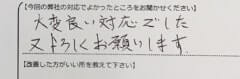 【今回の弊社の対応でよかったところをお聞かせください】
大変良い対応でした
又よろしくお願いします。
【改善した方がいい所を教えて下さい】